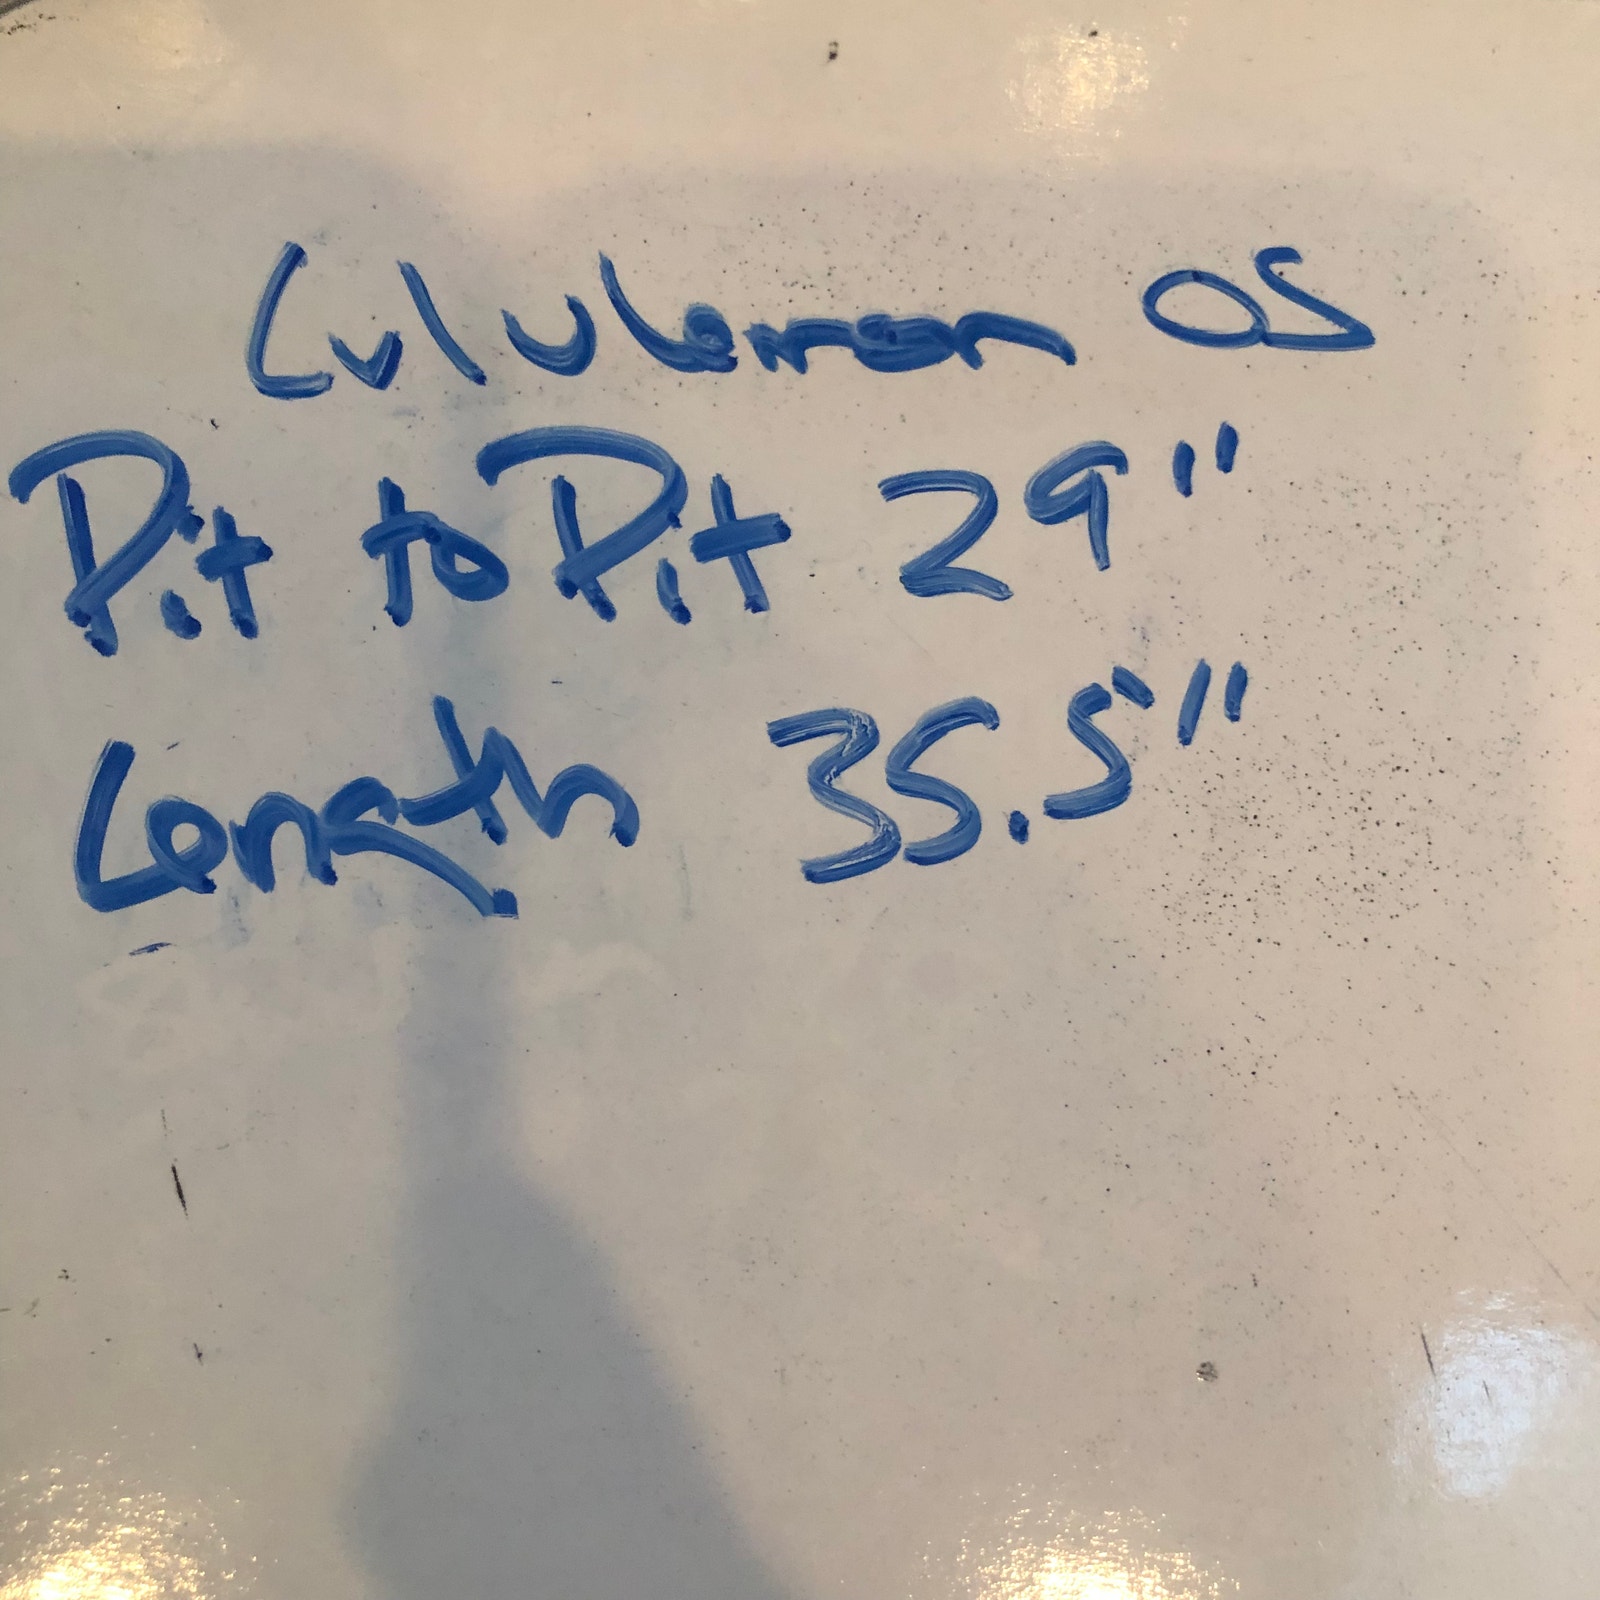 Lululemon OS
Pit to Pit 29"
Length 35.5"